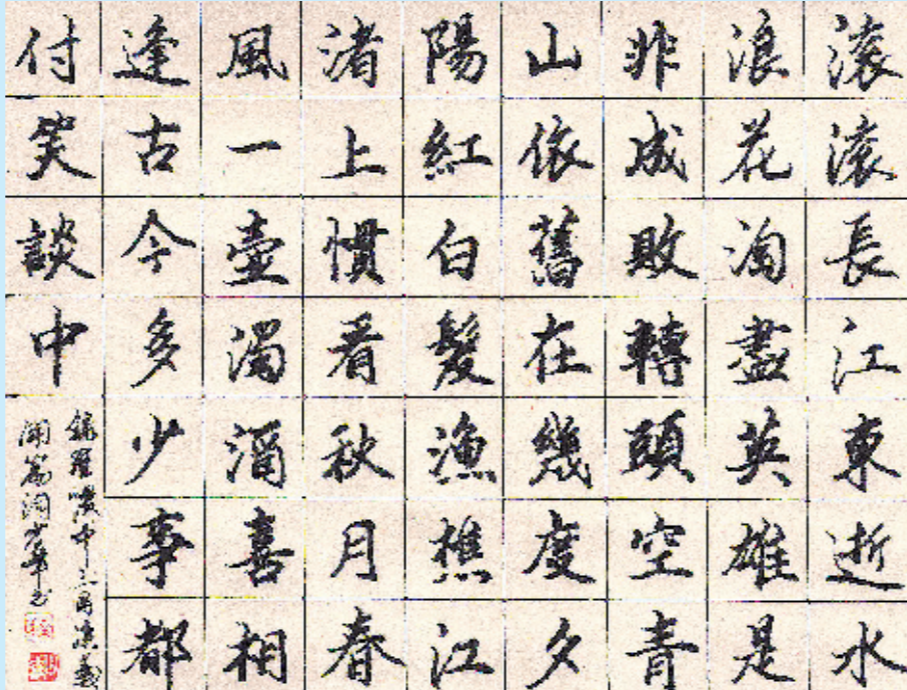 滚滚長江東逝水
浪花淘盡英雄是
非成敗轉頭空青
山依舊在幾度夕
陽紅白髮漁樵江
渚上慣看秋月春
風一壺濁酒喜相
逢古今多少事都
付笑談中
錄羅貫中三國演義
開篇詞少華书